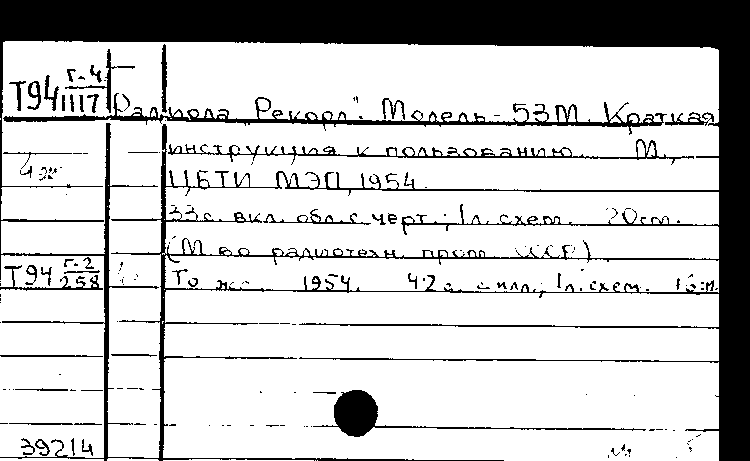 Т94 Г-4/1117 Радиола "Рекорд". Модель-53М. Краткая
инструкция к пользованию М.,
ЦБТИ МЭП, 1954.
33 с. вкл. обл. с черт.; 1 л. схем. 20 см.
(М-во радиотехн. пром. СССР)
Т94 Г-2/258 То же. 1954. 42 с. с илл.; 1 л. схем.
39214